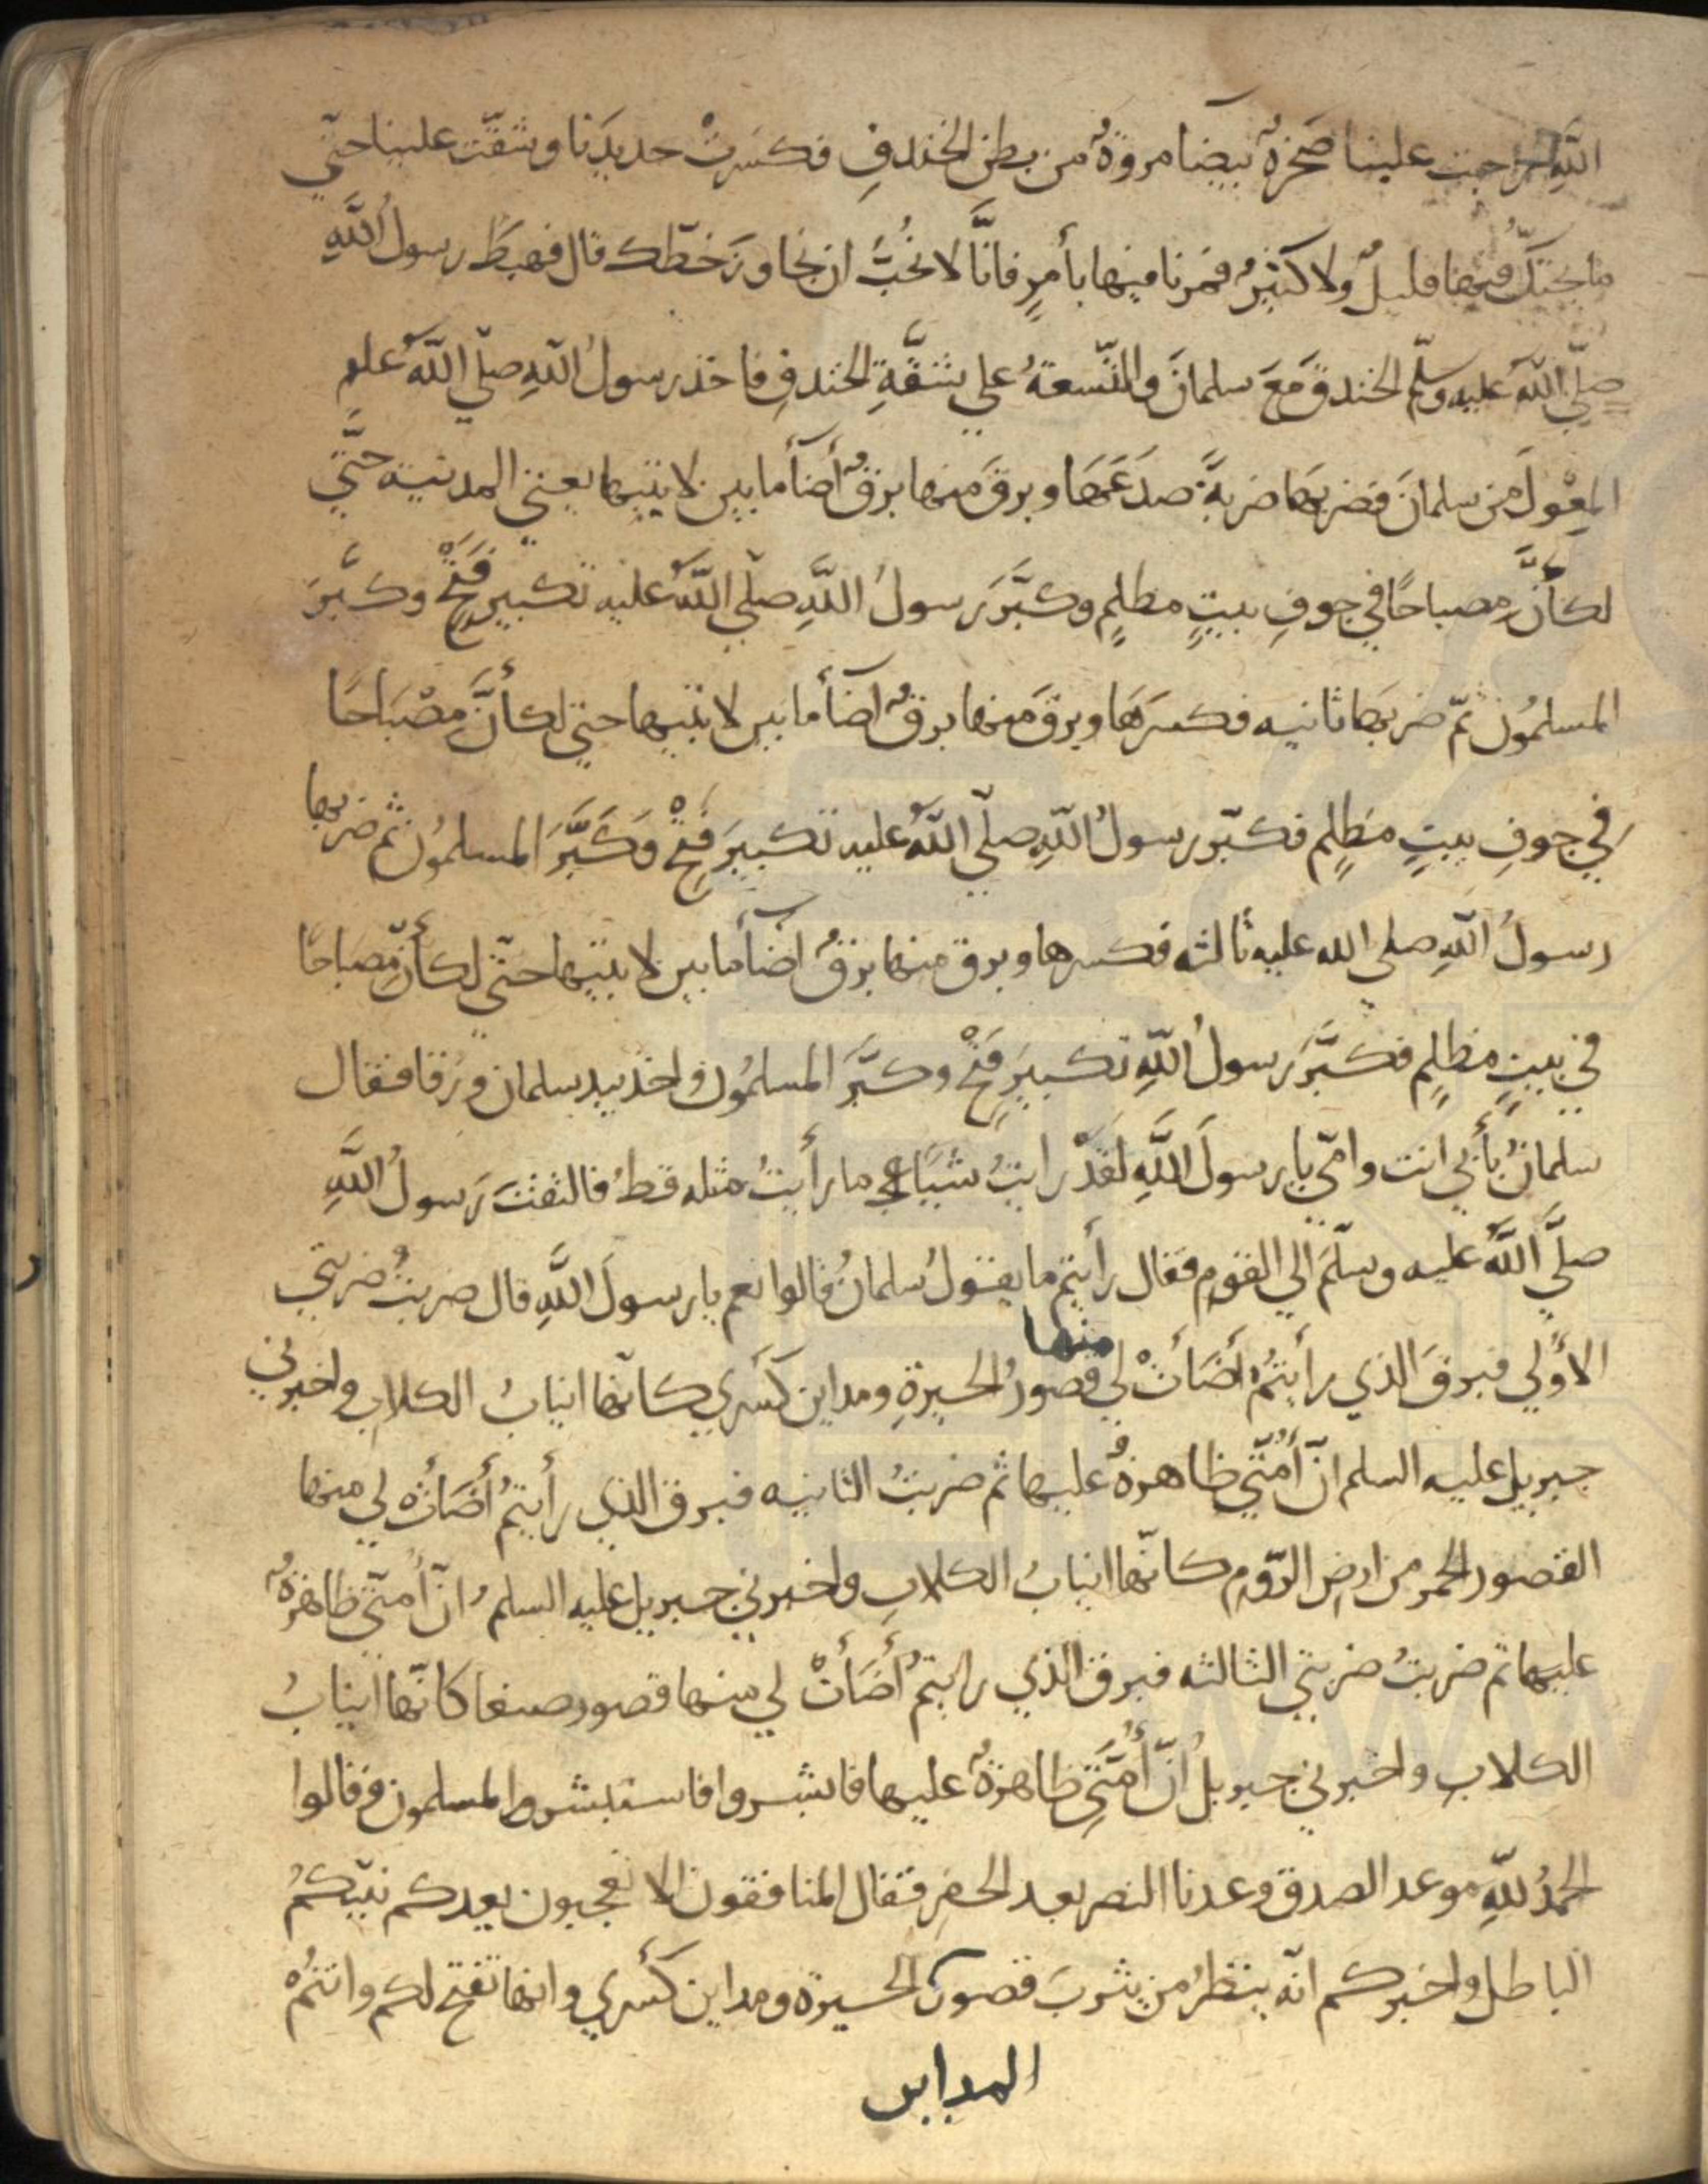 الله خرجت علينا صَخرةٌ بيضآ مروةٌ من بطن الخندقِ فكسَرتْ حديدَنا وشقَّت علينا حتّي
ما يحتكّ فيها قليلٌ ولا كثيرٌ فمُرنا فيها بأمرٍ فانَّا لا نُحبُّ ان نجاوزَ خطّك قال فهبَطَ رسولُ اللَّهِ
صلّي اللّهُ عليه وسلّم الخندقَ مَعَ سلمانَ والتّسعةُ علي شقَّةِ الخندقِ فاخذ رسولُ اللّهِ صلّي اللّهُ علم
المِعْوَلَ من سلمانَ فضربَها ضربةً صدَعَهَا وبرقَ منها برقٌ أضآأ ما بين لابتيها يعني المدنية حتَّي
لكأنَّ مصباحًا في جوفِ بيتٍ مظلمٍ وكبَّرَ رسولُ اللَّهِ صلّي اللّهُ عليه تكبيرَ فَتْحٍ وكبَّرَ
المسلمُون ثمّ ضربَها ثانيه فكسرَهَا وبرقَ منها برقٌ اضآأ ما بين لابتيها حتي لكأنَّ مصْبَاحًا
في جوفِ بيتٍ مظلمٍ فكبّر رسولُ اللّهِ صلّي اللّهُ عليه تكبيرَ فَتْحٍ وَكَبَّرَ المسلمُون ثم ضربها
رسولُ اللّهِ صلي الله عليه ثالثه فكسرها وبرق منها برقٌ اضآأ ما بين لابتيها حتّي لكأنّ مصباحا
في بيتٍ مظلمٍ فكبَّرَ رسولُ اللّهِ تكبيرَ فَتْحٍ وكبَّرَ المسلمُون واخذ بيد سلمان ورقا فقال
سلمانُ بأبي انت وامّي يا رسولَ اللَّهِ لقَدْ رايتُ شيئًا ما رأيتُ مثله قطُ فالتفتَ رَسولُ اللَّهِ
صلَّي اللَّهُ عليه وسلّمَ الي القومِ فقال رأيتم ما يقولُ سلمانُ قالوا نعم يا رسولَ اللَّهِ قال ضربتُ ضربتي
الأُولي فبرقَ الذي رأيتُمْ أضَأَتْ لي منها قصورُ الحيرةِ ومداين كَسْري كانّها انيابُ الكلاب واخبرني
جبريل عليه السلم انّ أُمّتي ظاهرةٌ عليها ثم ضربتُ الثانيه فبرق الذي رأيتمُ أَضَأَتْ لي منها
القصور الحمر من ارض الرّوم كانّها انيابُ الكلابِ واخبرني جبريل عليه السلمُ انّ أُمّتي ظاهرةٌ
عليها ثم ضربتُ ضربتي الثالثه فبرق الذي رايتم أَضَأَتْ لي منها قصور صنعا كانّها انيابُ
الكلابِ واخبرني جبريلُ انّ أُمّتِي ظاهرةٌ عليها فابشروا فاستبشر المسلمون وقالوا
الحمدُ للّهِ موعد الصدق وعدنا النصر بعد الحصر فقال المنافقون الا تعجبون يعدكم نبيّكُم
الباطل واخبركم انّه ينظرُ من يثربَ قصور الحيرة ومداين كَسْري وانها تفتح لكم وانتمُ
المداين